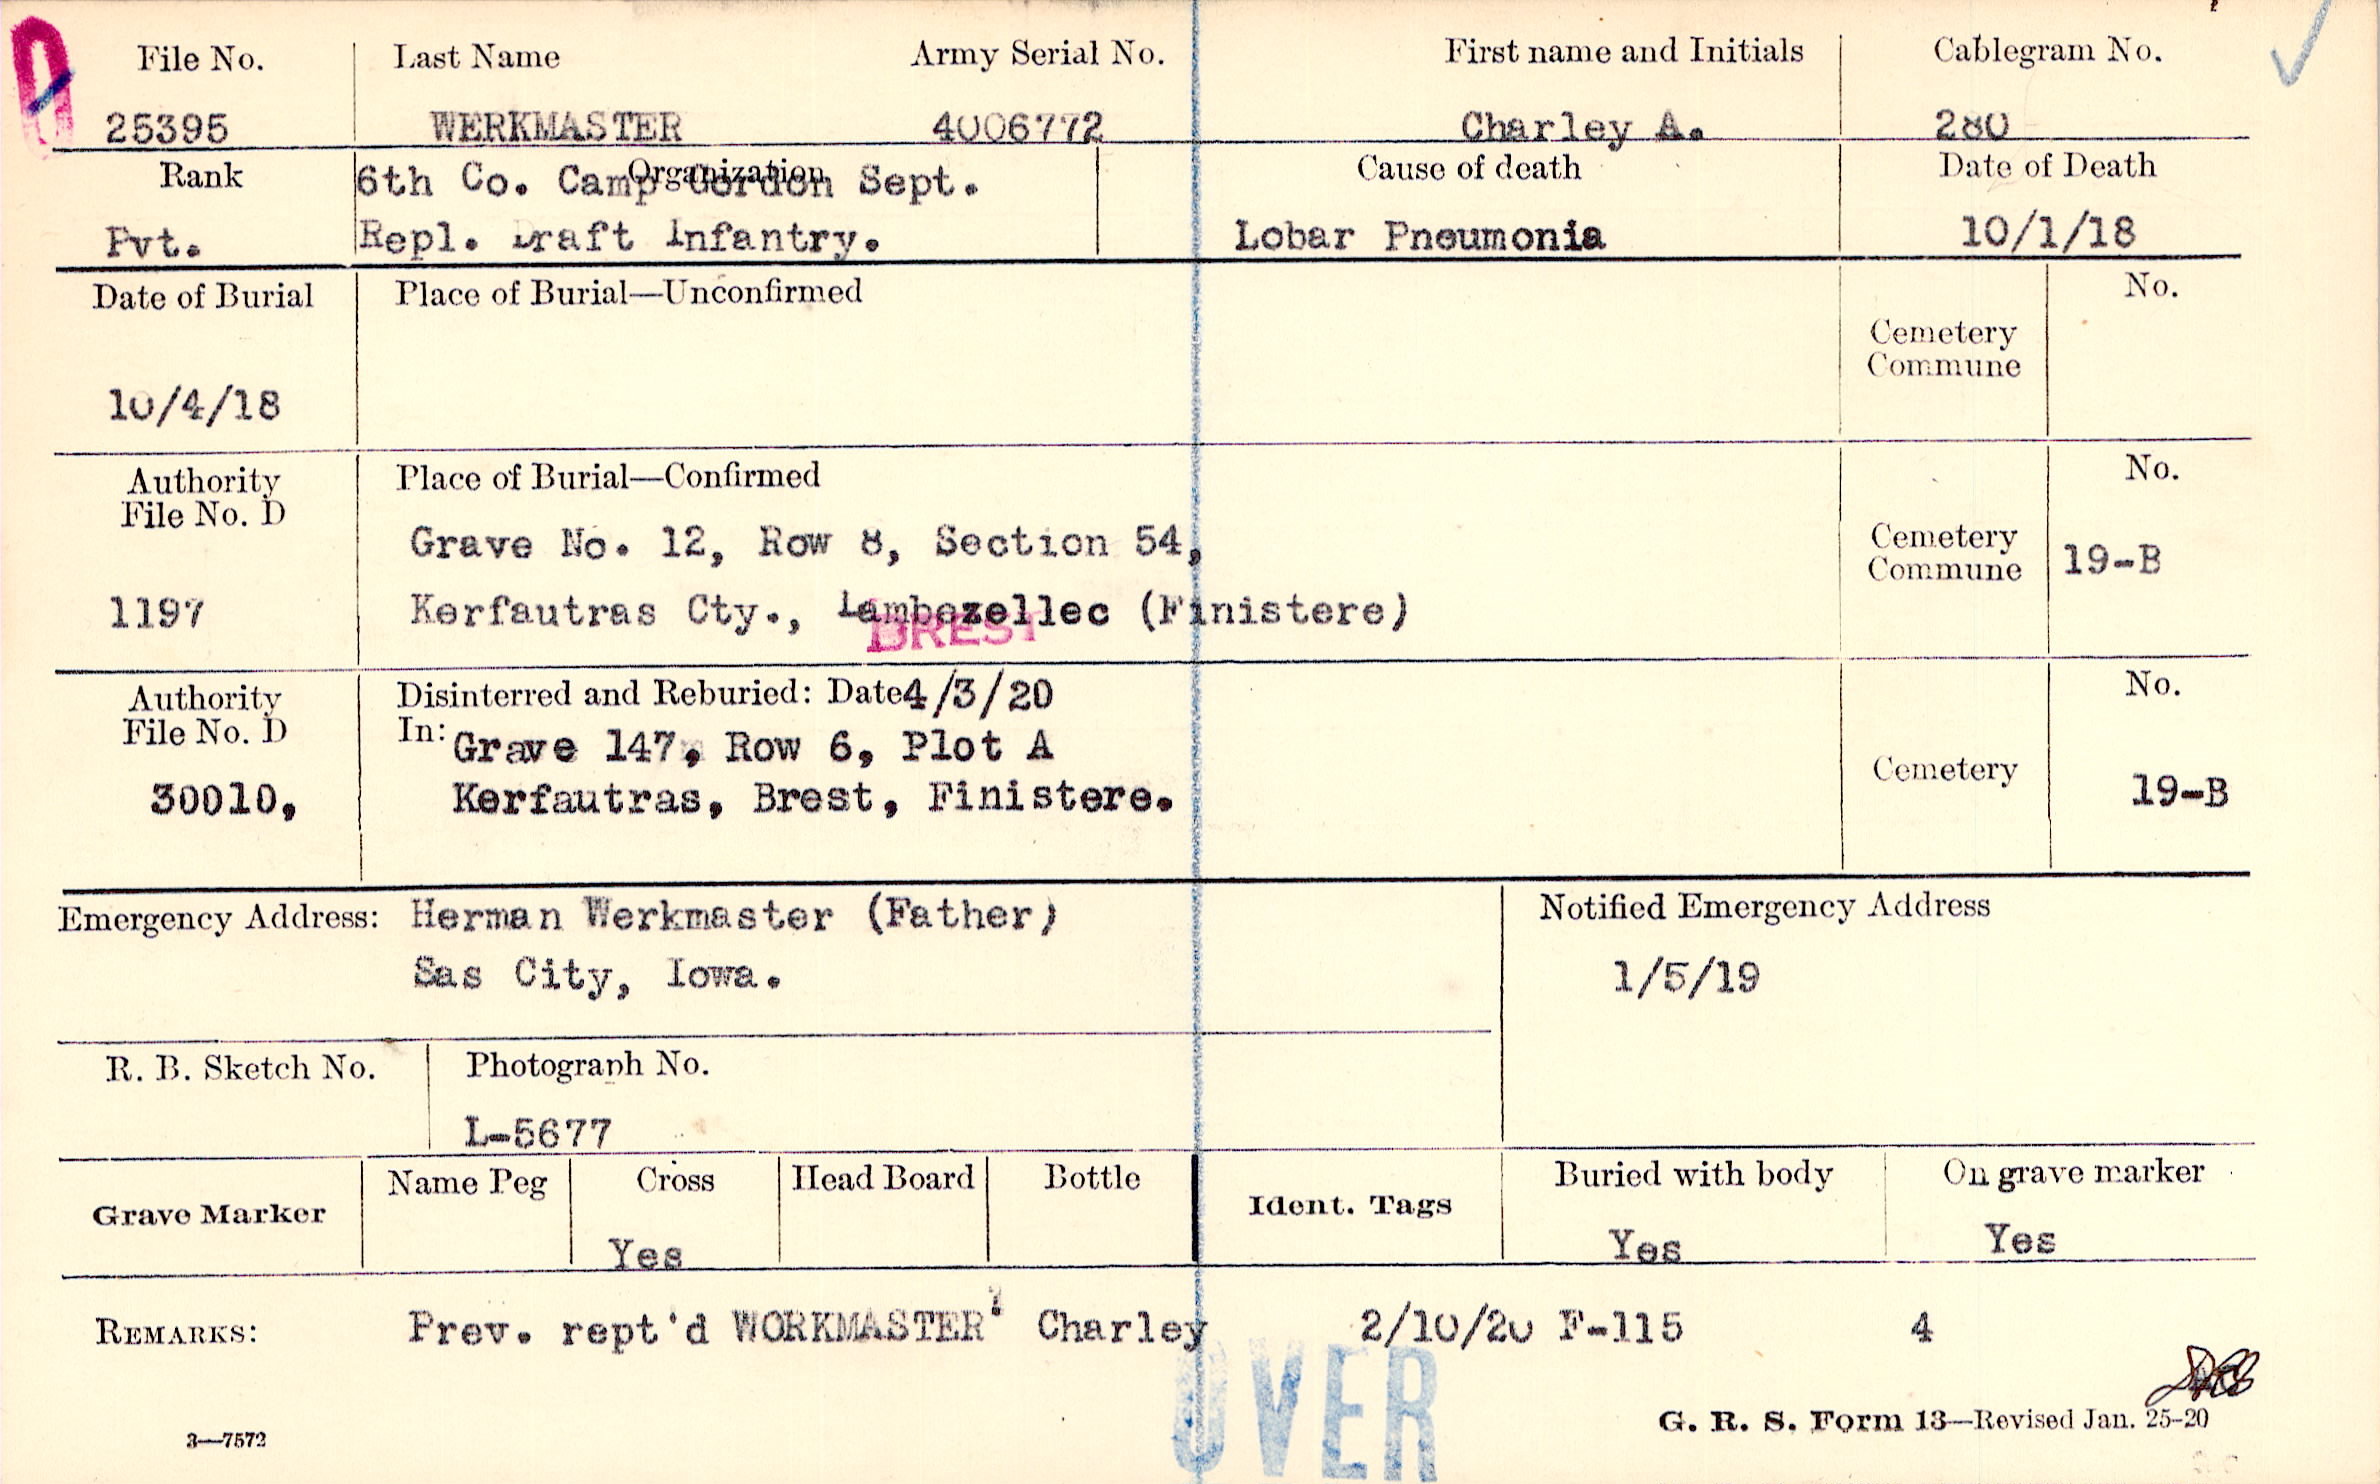 File No. Last Name Army Serial No. First name and Initials Cablegram No.
25395 WERKMASTER 4006772 Charley A. 280
Rank Organization Cause of death Date of Death
6th Co. Camp Gordon Sept.
Pvt. Repl. Draft Infantry. Lobar Pneumonia 10/1/18
Date of Burial Place of Burial—Unconfirmed No.
Cemetery
Commune
10/4/18
Authority Place of Burial—Confirmed No.
File No. D
Grave No. 12, Row 8, Section 54, Cemetery
Commune 19-B
1197 Kerfautras Cty., Lambezellec (Finistere)
BREST
Authority Disinterred and Reburied: Date 4/3/20 No.
File No. D In: Grave 147, Row 6, Plot A
Cemetery
30010, Kerfautras, Brest, Finistere. 19-B
Emergency Address: Herman Werkmaster (Father) Notified Emergency Address
Sas City, Iowa. 1/5/19
R. B. Sketch No. Photograph No.
L-5677
Grave Marker Name Peg Cross Head Board Bottle Ident. Tags Buried with body On grave marker
Yes Yes Yes
REMARKS: Prev. rept'd WORKMASTER, Charley 2/10/20 F-115 4
OVER
G. R. S. Form 13—Revised Jan. 25-20
3—7572